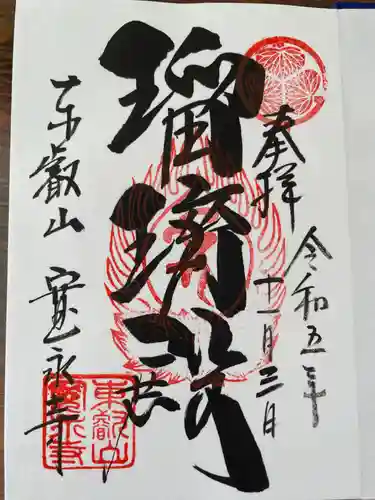 奉拝
令和五年
十一月三日
瑠璃殿
東叡山 寛永寺
東叡山
寛永寺